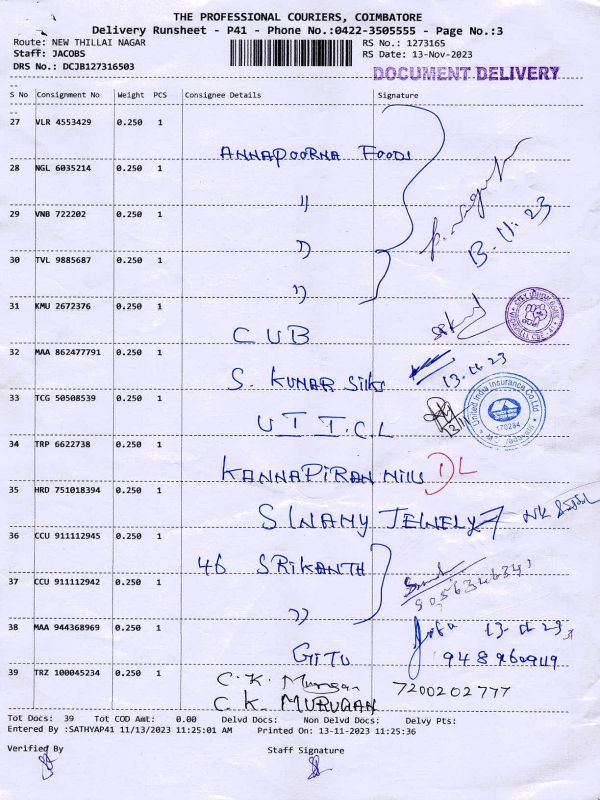 THE PROFESSIONAL COURIERS, COIMBATORE
Delivery Runsheet - P41 - Phone No.:0422-3505555 - Page No.:3
Route: NEW THILLAI NAGAR RS No.: 1273165
Staff: JACOBS RS Date: 13-Nov-2023
DRS No.: DCJB127316503
DOCUMENT DELIVERY
S No Consignment No Weight PCS Consignee Details Signature
27 VLR 4553429 0.250 1
ANNAPOORNA FOODS
28 NGL 6035214 0.250 1
"
13.11.23
29 VNB 722202 0.250 1
"
30 TVL 9885687 0.250 1
"
31 KMU 2672376 0.250 1
CUB
32 MAA 862477791 0.250 1
13.11.23
S. KUMAR SILKS
33 TCG 50508539 0.250 1
United India Insurance Co.Ltd.
170284
U I I. C L
34 TRP 6622738 0.250 1
KANNAPIRAN MILLS DL
35 HRD 751018394 0.250 1
36 CCU 911112945 0.250 1
46 SRIKANTH
37 CCU 911112942 0.250 1
"
38 MAA 944368969 0.250 1
13.11.23
39 TRZ 100045234 0.250 1
C. K. Murugan 7200202777
C. K. MURUGAN
Tot Docs: 39 Tot COD Amt: 0.00 Delvd Docs: Non Delvd Docs: Delvy Pts:
Entered By :SATHYAP41 11/13/2023 11:25:01 AM Printed On: 13-11-2023 11:25:36
Verified By Staff Signature